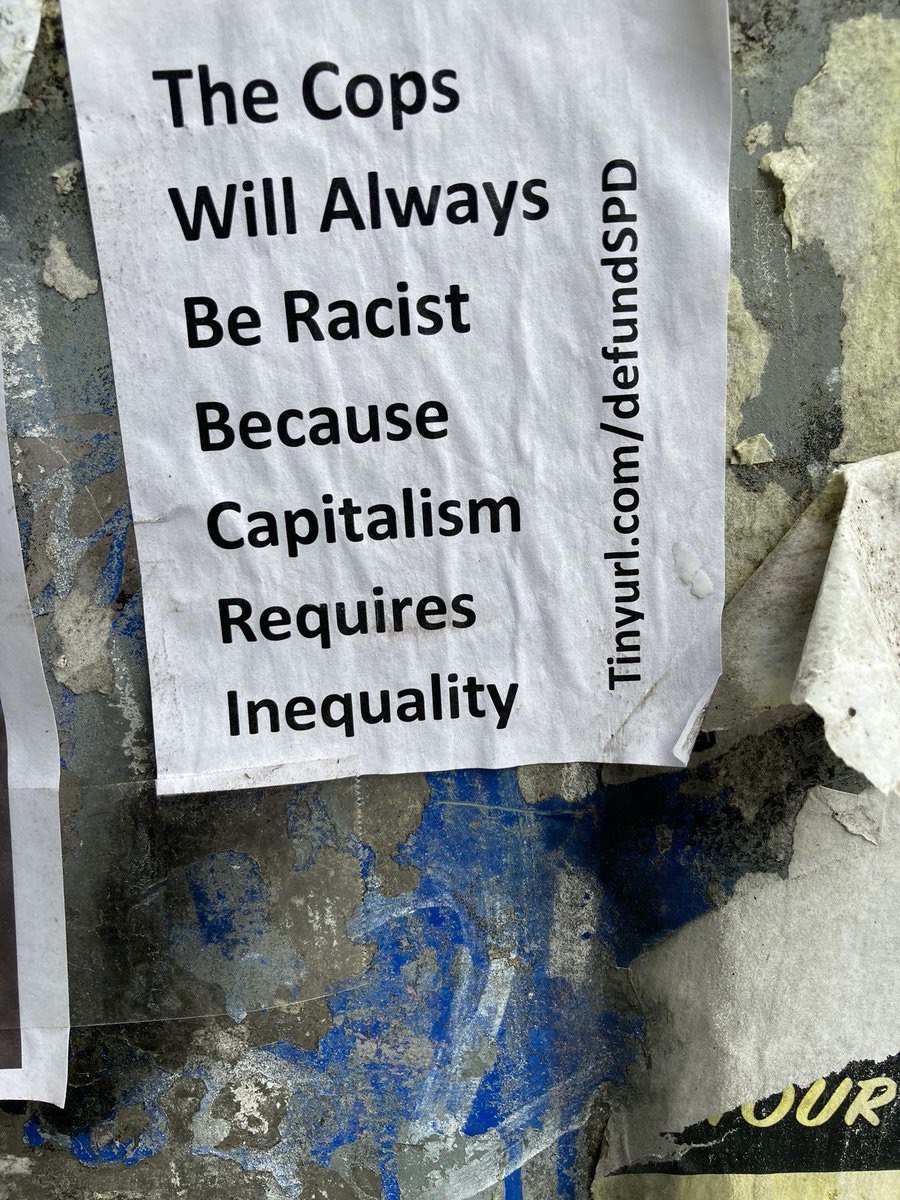 The Cops
Will Always
Be Racist
Because
Capitalism
Requires
Inequality
Tinyurl.com/defundSPD
OUR